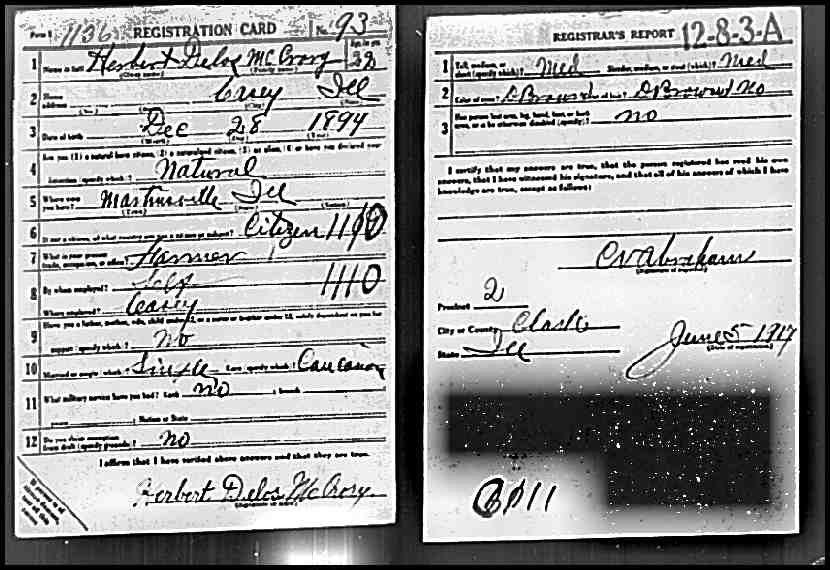 Form 1 1136 REGISTRATION CARD No. 93
1 Name in full Herbert Delos McCrory Age in yrs 22
(Given name) (Family name)
2 Home address Casey Ill
(No.) (Street) (City) (State)
3 Date of birth Dec 28 1894
(Month) (Day) (Year)
4 Are you (1) a natural born citizen, (2) a naturalized citizen, (3) an alien, (4) or have you declared your
intention (specify which)? Natural
5 Where were you born? Martinsville Ill
(Town) (State) (Nation)
6 If not a citizen, of what country are you a citizen or subject? Citizen
7 What is your present trade, occupation, or office? Farmer
8 By whom employed? Self 1110
Where employed? Casey
9 Have you a father, mother, wife, child under 12, or a sister or brother under 12, solely dependent on you for
support (specify which)? No
10 Married or single (which)? Single Race (specify which)? Caucasian
11 What military service have you had? Rank no ; branch
years ; Nation or State
12 Do you claim exemption from draft (specify grounds)? No
I affirm that I have verified above answers and that they are true.
Herbert Delos McCrory
REGISTRAR'S REPORT 12-8-3-A
1 Tall, medium, or short (specify which)? Med Slender, medium, or stout (which)? Med
2 Color of eyes? D Brown Color of hair? D Brown No
3 Has person lost arm, leg, hand, foot, or both
eyes, or is he otherwise disabled (specify)? no
I certify that my answers are true, that the person registered has read his own
answers, that I have witnessed his signature, and that all of his answers of which I have
knowledge are true, except as follows:
CV Abraham
(Signature of registrar)
Precinct 2
City or County Clark
State Ill
June 5 1917
(Date of registration)